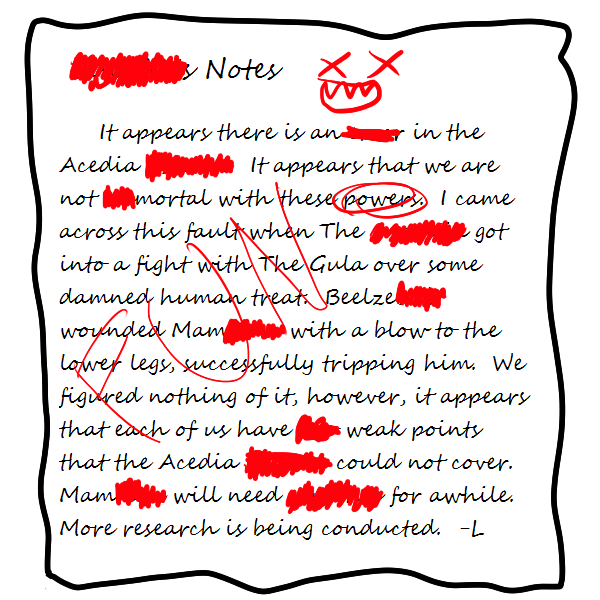 s Notes
It appears there is an in the
Acedia It appears that we are
not mortal with these powers. I came
across this fault when The got
into a fight with The Gula over some
damned human treat. Beelze
wounded Mam with a blow to the
lower legs, successfully tripping him. We
figured nothing of it, however, it appears
that each of us have weak points
that the Acedia could not cover.
Mam will need for awhile.
More research is being conducted. -L
FUN